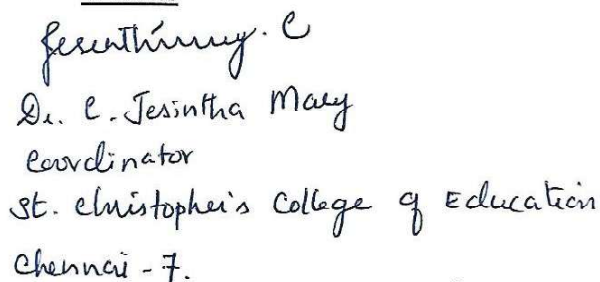 Dr. C. Jesintha Mary
Coordinator
St. Christopher's College of Education
Chennai - 7.